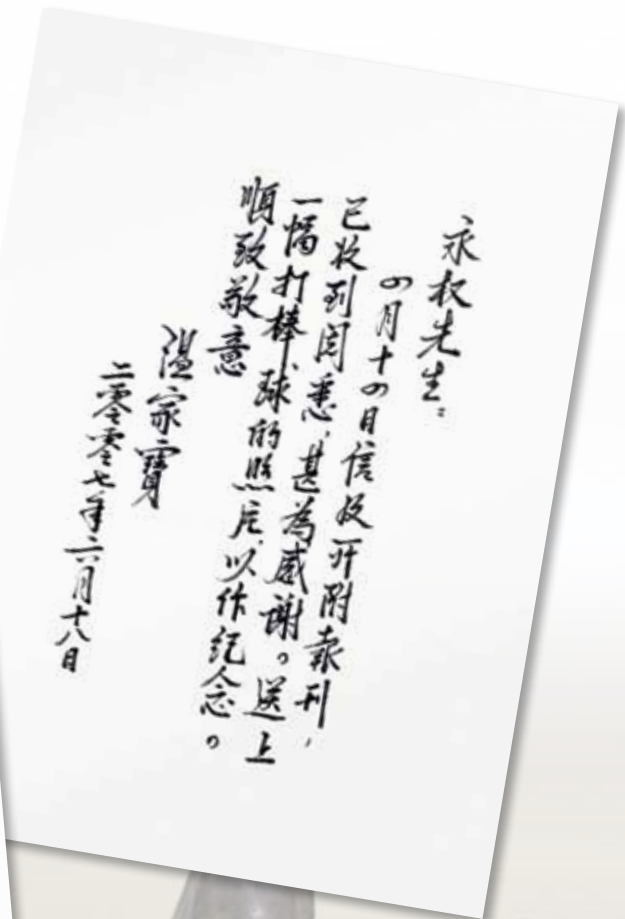 永权先生：
四月十四日信及所附報刊，
已收到阅悉，甚為感謝。送上
一幅打棒球的照片，以作紀念。
順致敬意
溫家寶
二零零七年六月十八日